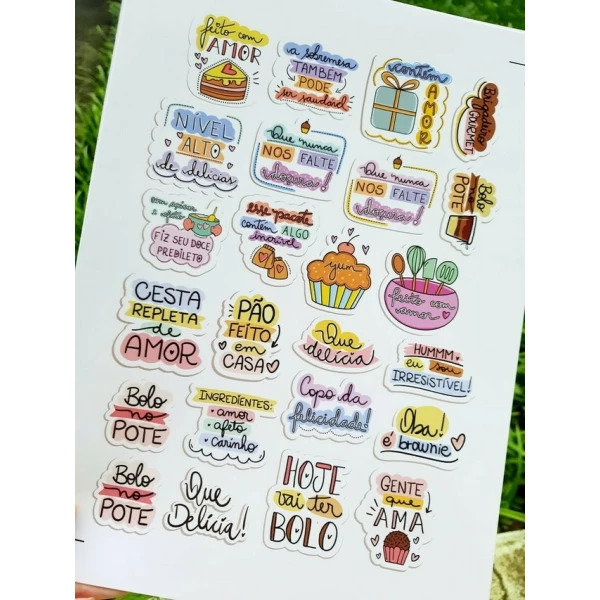 feito com
AMOR
a sobremesa
TAMBÉM
PODE
ser saudável
contém
AMOR
Brigadeiro
GOURMET
NÍVEL
ALTO
de delícias
Que nunca
NOS FALTE
doçura!
Que nunca
NOS FALTE
doçura!
Bolo
no
POTE
com açúcar
e afeto
FIZ SEU DOCE
PREDILETO
esse pacote
contém ALGO
incrível
yum
feito com
amor
CESTA
REPLETA
de
AMOR
PÃO
FEITO
em
CASA
Que
delícia
HUMMM,
eu sou
IRRESISTÍVEL!
Bolo
no
POTE
INGREDIENTES:
• amor
• afeto
• carinho
Copo da
felicidade!
Oba!
é brownie
Bolo
no
POTE
Que
Delícia!
HOJE
vai ter
BOLO
GENTE
que
AMA